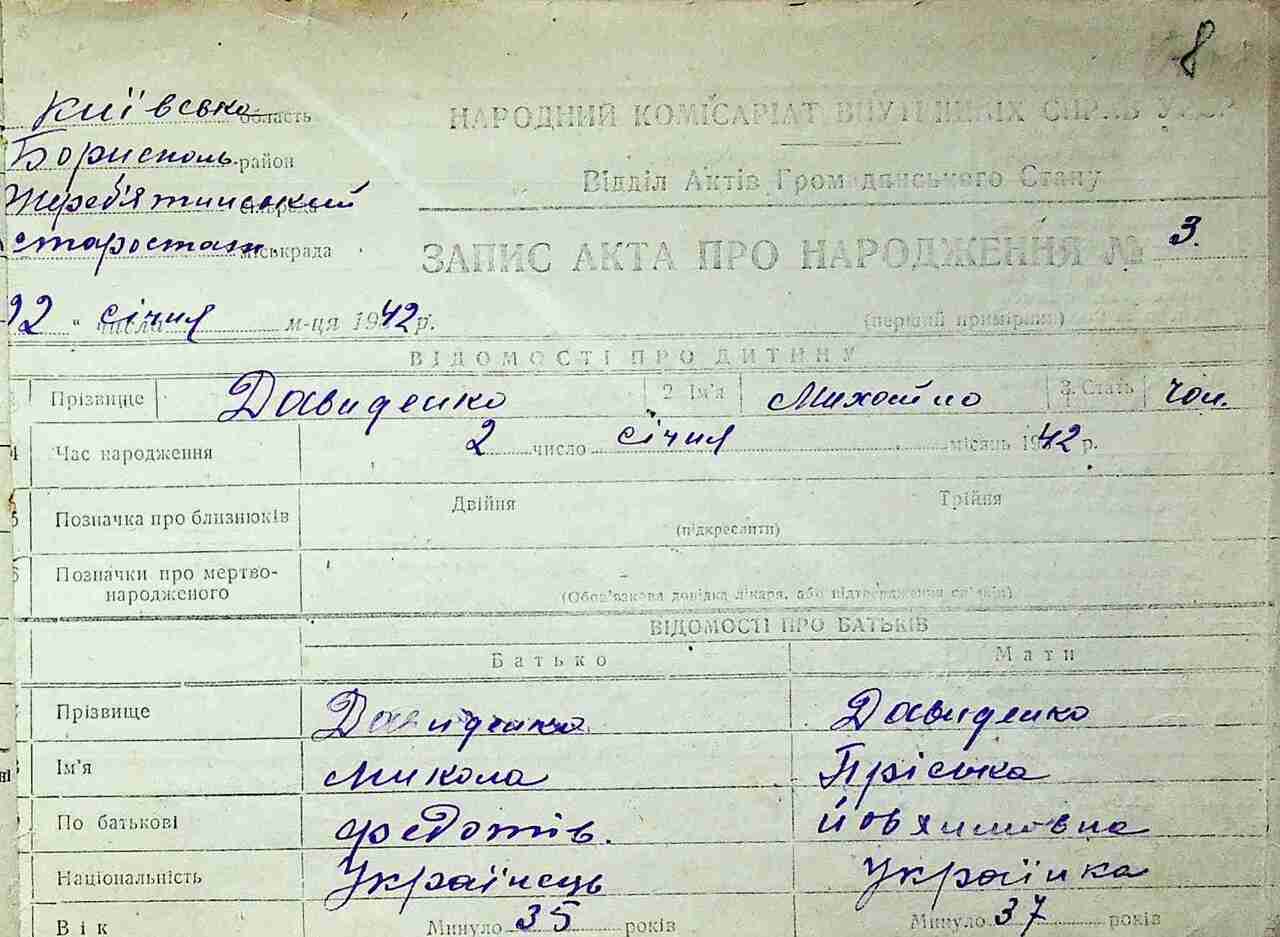 8
Київсько область
НАРОДНИЙ КОМІСАРІАТ ВНУТРІШНІХ СПРАВ УРСР
Бориспольрайон
Відділ Актів Громадянського Стану
Жереб'ятинський сільрада
старостат міськрада
ЗАПИС АКТА ПРО НАРОДЖЕННЯ № 3.
12 " числа січня м-ця 1942 р.
(перший примірник)
ВІДОМОСТІ ПРО ДИТИНУ
Прізвище Давиденко 2 Ім'я Михайло 3. Стать Чол.
4 Час народження 2 число січня місяць 1942 р.
5 Позначка про близнюків Двійня Трійня
(підкреслити)
6 Позначки про мертво-
народженого (Обов'язкова довідка лікаря, або підтвердження свідків)
ВІДОМОСТІ ПРО БАТЬКІВ
Батько Мати
Прізвище Давиденко Давиденко
Ім'я Микола Пріська
По батькові Федотів. Йовхимовна
Національність Українець Українка
Вік Минуло 35 років Минуло 37 років